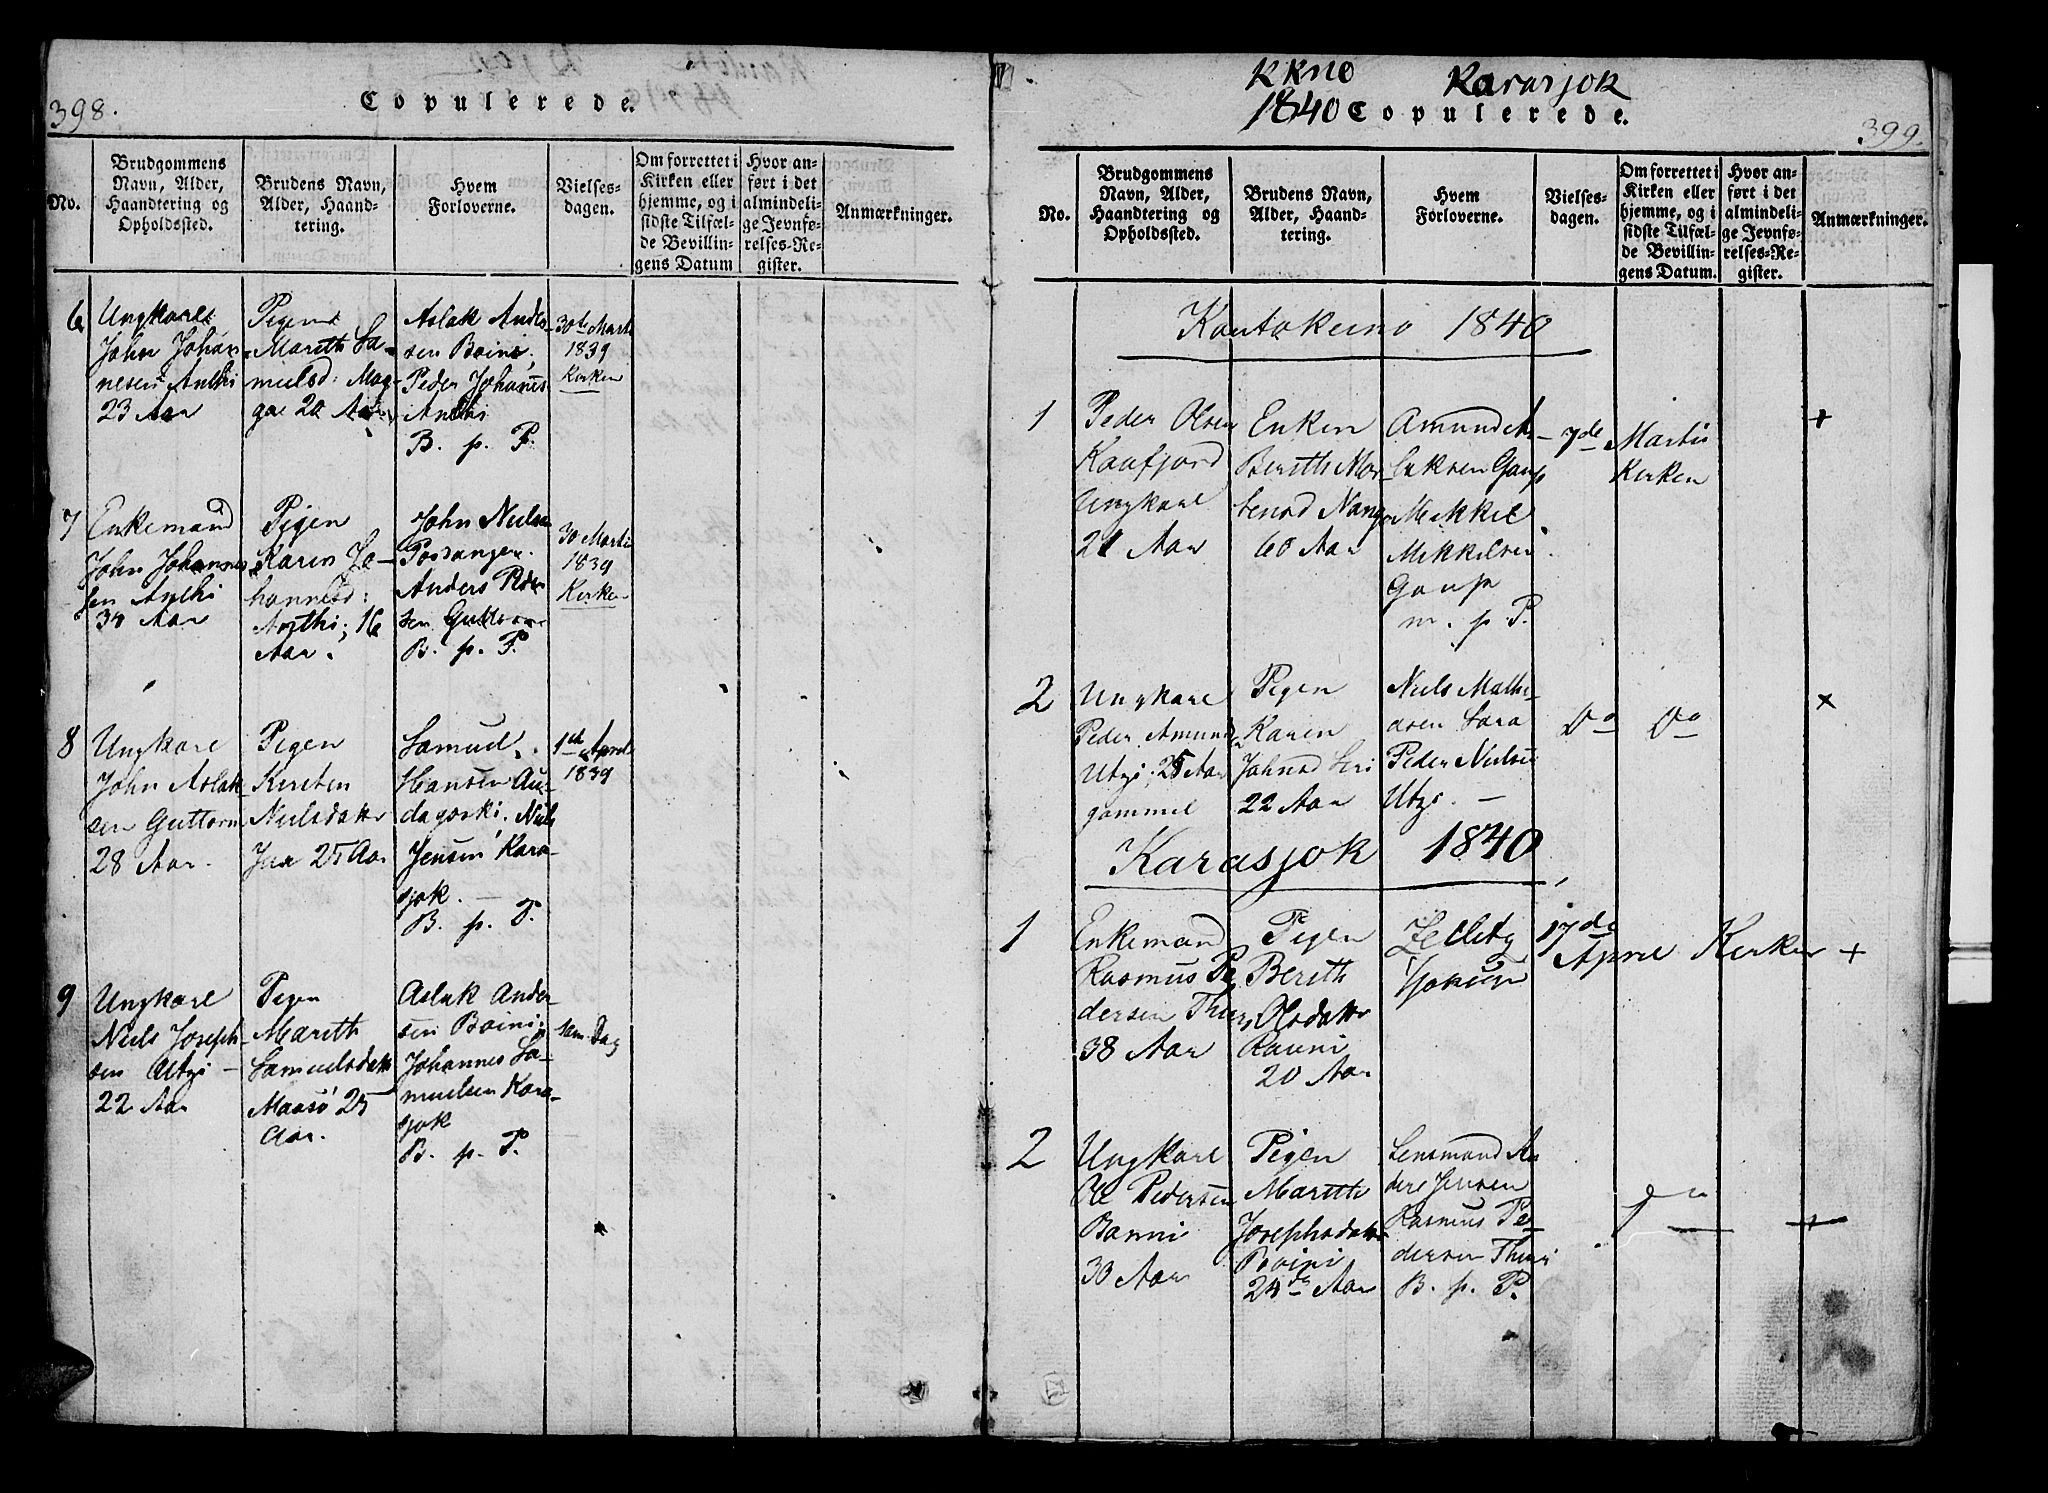 398.
Copulerede.
No.
Brudgommens
Navn, Alder,
Haandtering og
Opholdssted.
Brudens Navn,
Alder, Haand-
tering.
Hvem
Forloverne.
Vielses-
dagen.
Om forrettet i
Kirken eller
hjemme, og i
sidste Tilfæl-
de Bevillin-
gens Datum
Hvor an-
ført i det
almindeli-
ge Jevnfø-
relses-Re-
gister.
Anmærkninger.
6
Ungkarl
John Johan-
nesen Anthi
23 Aar
Pigen
Mareth Sa-
muelsd: Mag-
ga 20 Aar
Aslak Ander-
sen Boini,
Peder Johanes
Anthi
B. p. P.
30te Marti
1839
Kirken
7
Enkemand
John Johannes-
sen Anthi
34 Aar
Pigen
Karen Jo-
hannesd:
Anthi, 16
Aar.
John Nielsen
Porsanger
Anders Peder
sen Guttorm
B. p. P.
30 Marti
1839
Kirken
8
Ungkarl
John Aslak-
sen Guttorm
28 Aar.
Pigen
Kirsten
Nielsdatter
25 Aar
Samuel
Hansen Au-
dagoski. Niels
Jensen Kara-
sjok.
B. p. P.
1ste April
1839
9
Ungkarl
Niels Joseph-
sen Utzi
22 Aar
Pigen
Mareth
Samuelsdatter
Maasø 25
Aar.
Aslak Ander-
sen Boini,
Johannes Sa-
muelsen Kara-
sjok
B. p. P.
sam. Dag
KKno Karasjok
1840 Copulerede.
399.
No.
Brudgommens
Navn, Alder,
Haandtering og
Opholdssted.
Brudens Navn,
Alder, Haand-
tering.
Hvem
Forloverne.
Vielses-
dagen.
Om forrettet i
Kirken eller
hjemme, og i
sidste Tilfæl-
de Bevillin-
gens Datum.
Hvor an-
ført i det
almindeli-
ge Jevnfø-
relses-Re-
gister.
Anmærkninger.
Kautokeino 1840
1
Peder Olsen
Kaafjord
Ungkarl
21 Aar
Enken
Bereth Mor-
tensd Nango
60 Aar
Amund As-
laksen Gaup
Mikkel
Mikkelsen
Gaup
m. p. P.
7de Martii
Kirken
+
2
Ungkarl
Peder Amunds
Utzi, 25 Aar
gammel
Pigen
Karen
Johnsd Siri
22 Aar
Niels Mathi-
asen Sara
Peder Nielsen
Utzi. —
Do Do
x
Karasjok 1840
1
Enkemand
Rasmus Pe-
dersen Thuri
38 Aar
Pigen
Bereth
Olsdatter
Rauni
20 Aar
17de
April Kirken +
2
Ungkarl
Ole Pedersen
Banni
30 Aar
Pigen
Mareth
Josephsdatter
Boini
24 Aar
Lensmand An
ders Jensen
Rasmus Pe-
dersen Thuri
B. p. P.
+